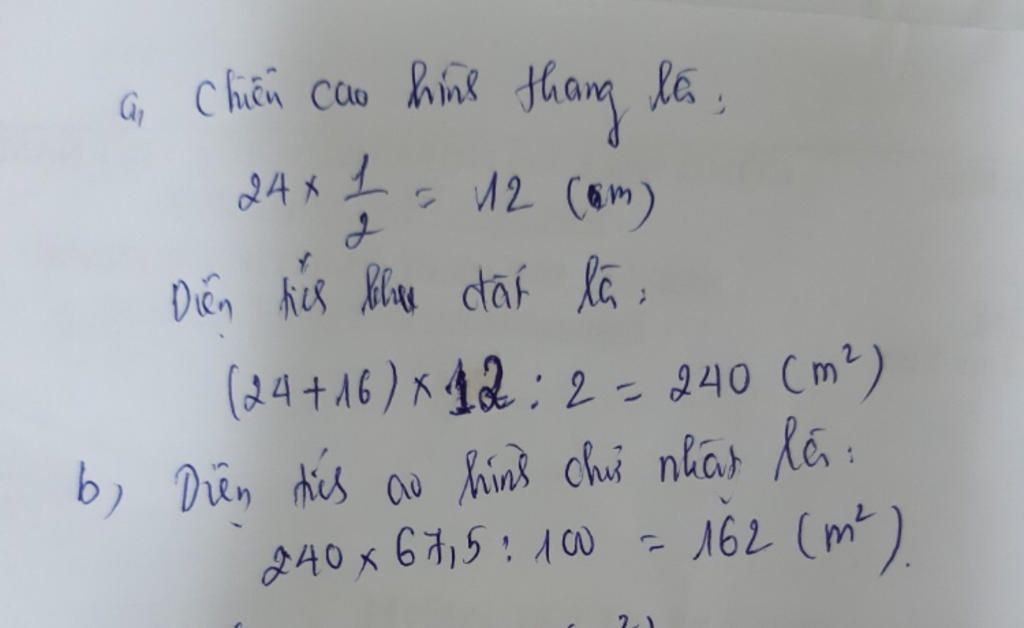 a, Chiều cao hình thang là:
24 × 1/2 = 12 (m)
Diện tích khu đất là:
(24 + 16) × 12 : 2 = 240 (m²)
b) Diện tích ao hình chữ nhật là:
240 × 67,5 : 100 = 162 (m²).